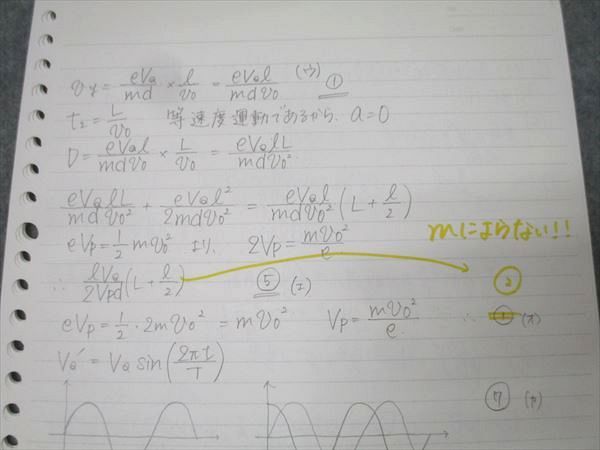 vy = eVa/md × l/v0 = eVal/mdv0 (ウ) ①
t2 = L/v0 等速度運動であるから、a=0
D = eVal/mdv0 × L/v0 = eValL/mdv0²
eValL/mdv0² + eVal²/2mdv0² = eVal/mdv0² (L + l/2)
mによらない!!
eVp = 1/2 mv0² より、 2Vp = mv0²/e
∴ lVa/2Vpd (L + l/2) ⑤ (エ) ②
eVp = 1/2・2mv0² = mv0² Vp = mv0²/e ∴ ① (オ)
Va' = Va sin(2πt/T)
⑦ (カ)